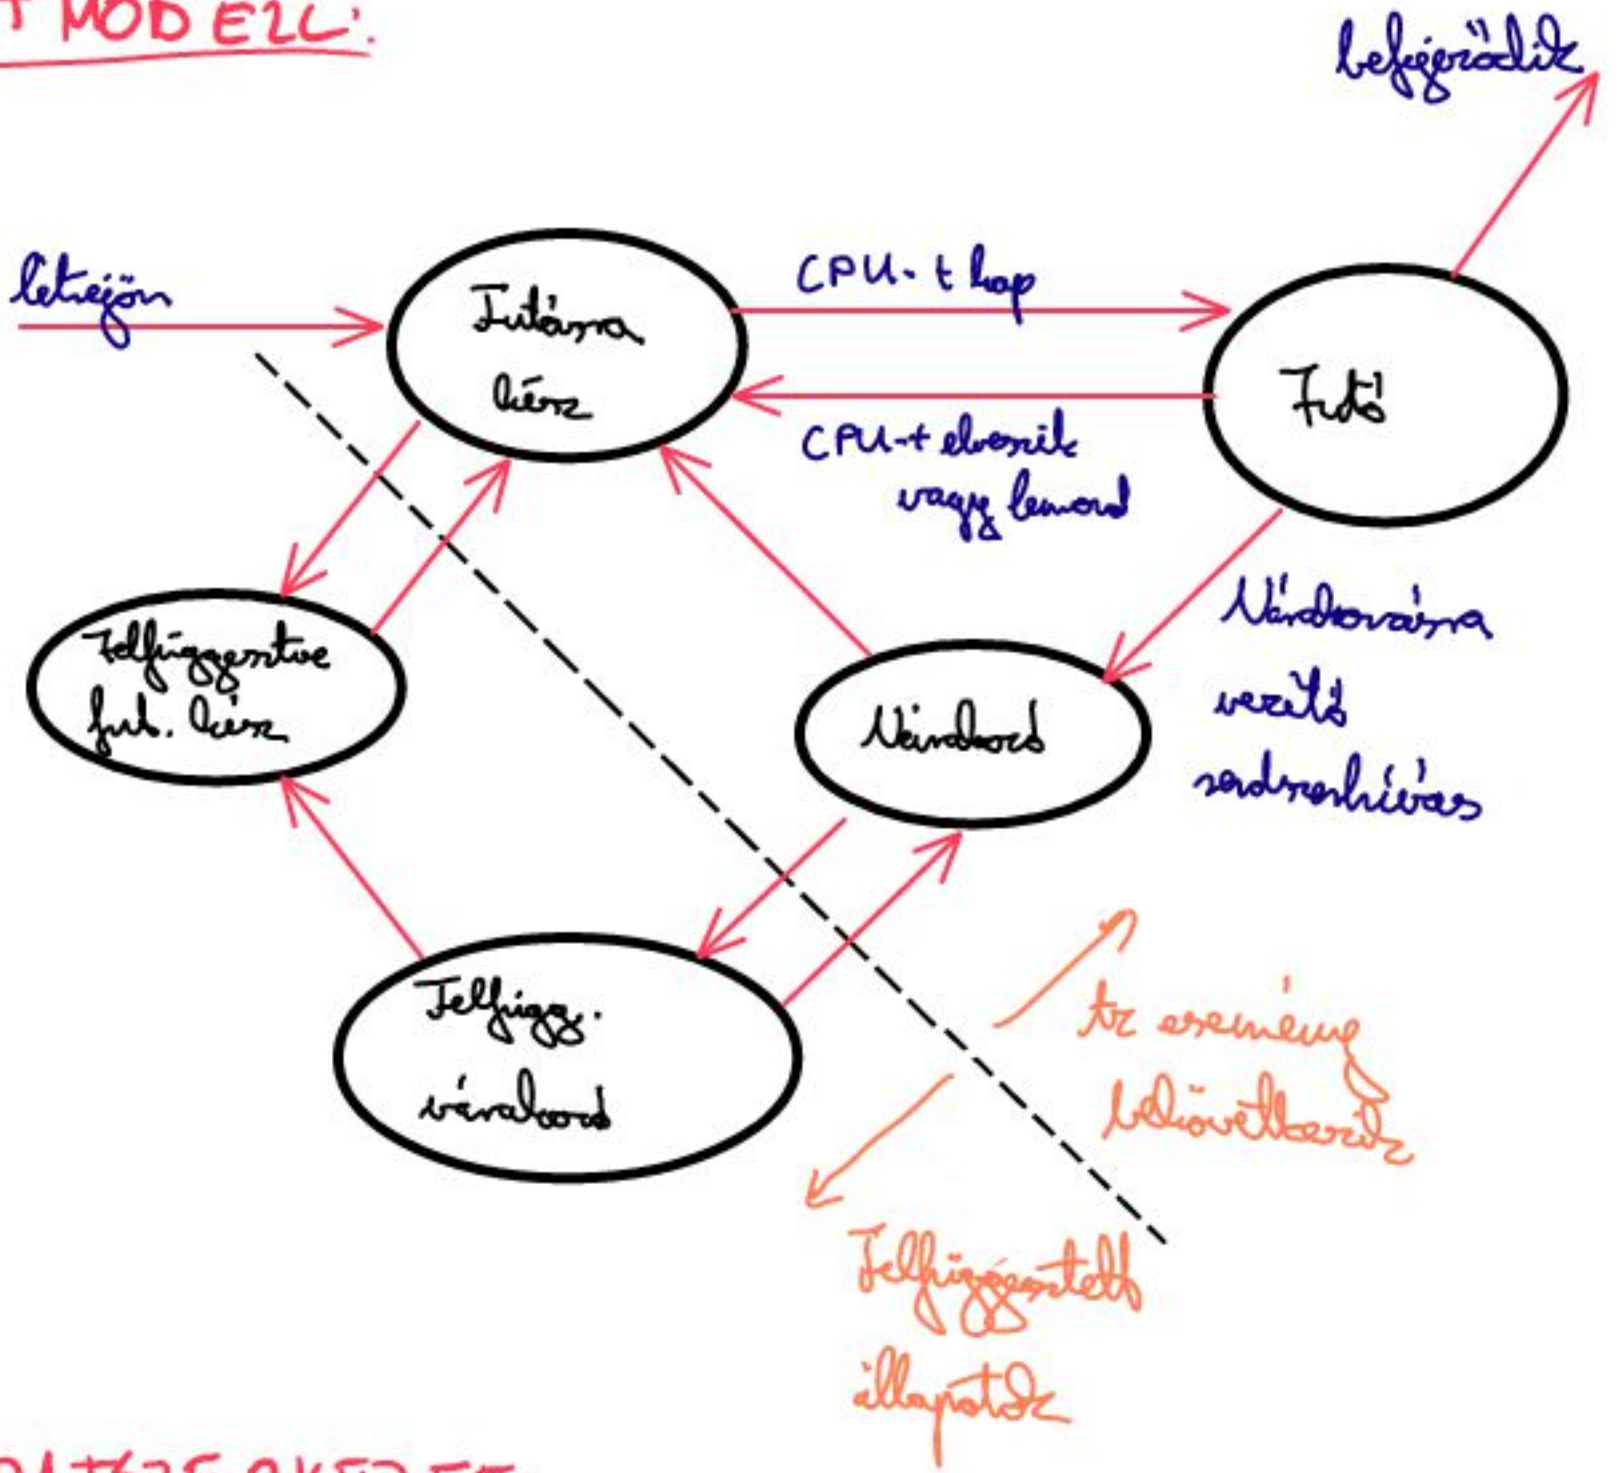 T MODELL:
befejeződik
létrejön
CPU-t kap
Futásra
kész
Futó
CPU-t elveszik
vagy lemond
Várakozásra
vezető
rendszerhívás
Felfüggesztve
fut. kész
Várakozó
Felfügg.
várakozó
Az esemény
bekövetkezik
Felfüggesztett
állapotok